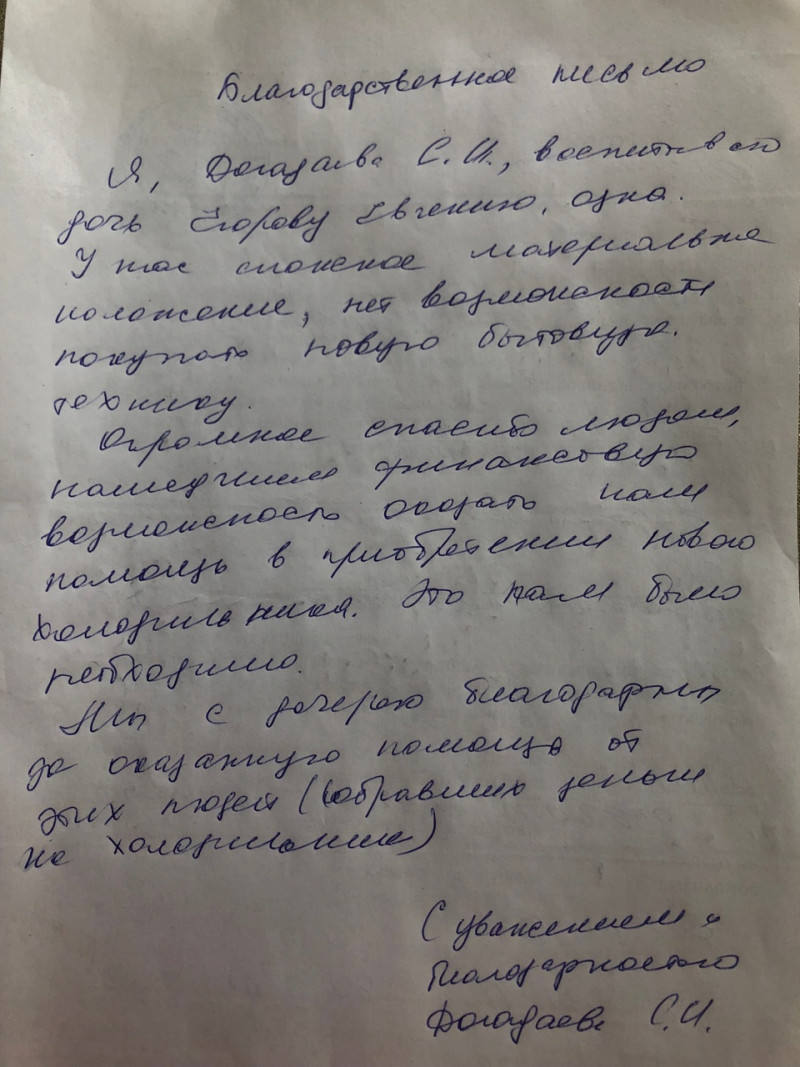 Благодарственное письмо
Я, Догадаева С.И., воспитываю
дочь Егорову Евгению, одна.
У нас сложное материальное
положение, нет возможности
покупать новую бытовую
технику.
Огромное спасибо людям,
нашедшим финансовую
возможность оказать нам
помощь в приобретении нового
холодильника. Это нам было
необходимо.
Мы с дочерью благодарны
за оказанную помощь от
этих людей (собравших деньги
на холодильник)
С уважением и
благодарностью
Догадаева С.И.